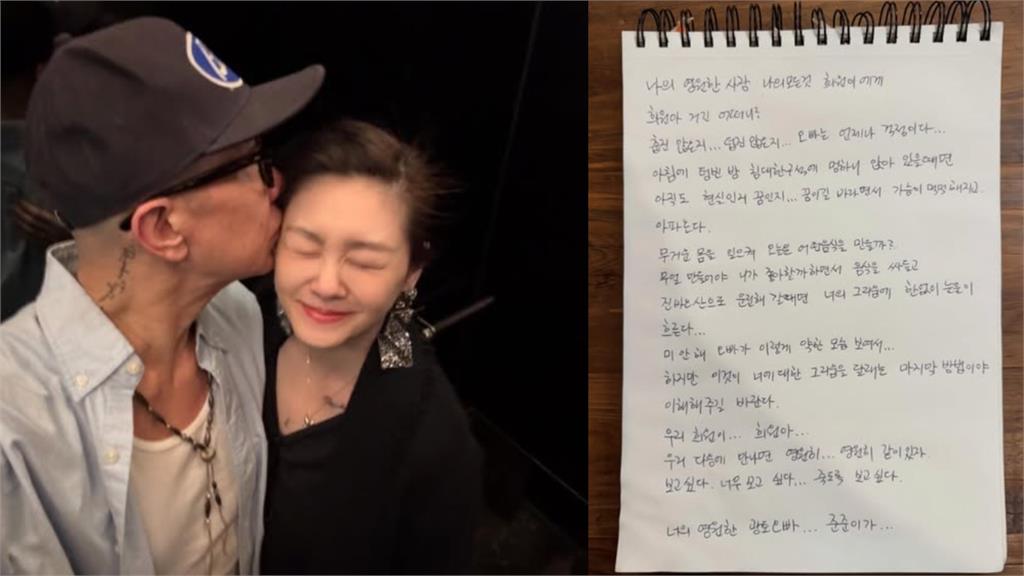 나의 영원한 사랑 나의모든것 희원이에게
희원아 거긴 어떠니?
춥진 않은지... 덥진 않은지... 오빠는 언제나 걱정이다...
아침에 텅빈 방 침대한구석에 멍하니 앉아 있을때면
아직도 현실인지 꿈인지... 꿈이길 바라면서 가슴이 먹먹해지고
아파온다.
무거운 몸을 일으켜 오늘은 어떤음식을 만들까?
무얼 만들어야 네가 좋아할까하면서 음식을 싸들고
진바오산으로 운전해 갈때면 너의 그리움에 한없이 눈물이
흐른다...
미안해 오빠가 이렇게 약한 모습 보여서...
하지만 이것이 너에대한 그리움을 달래는 마지막 방법이야
이해해주길 바란다.
우리 희원이... 희원아...
우리 다음에 만나면 영원히... 영원히 같이있자
보고싶다. 너무 보고 싶다... 죽도록 보고싶다.
너의 영원한 광토오빠... 준준이가...